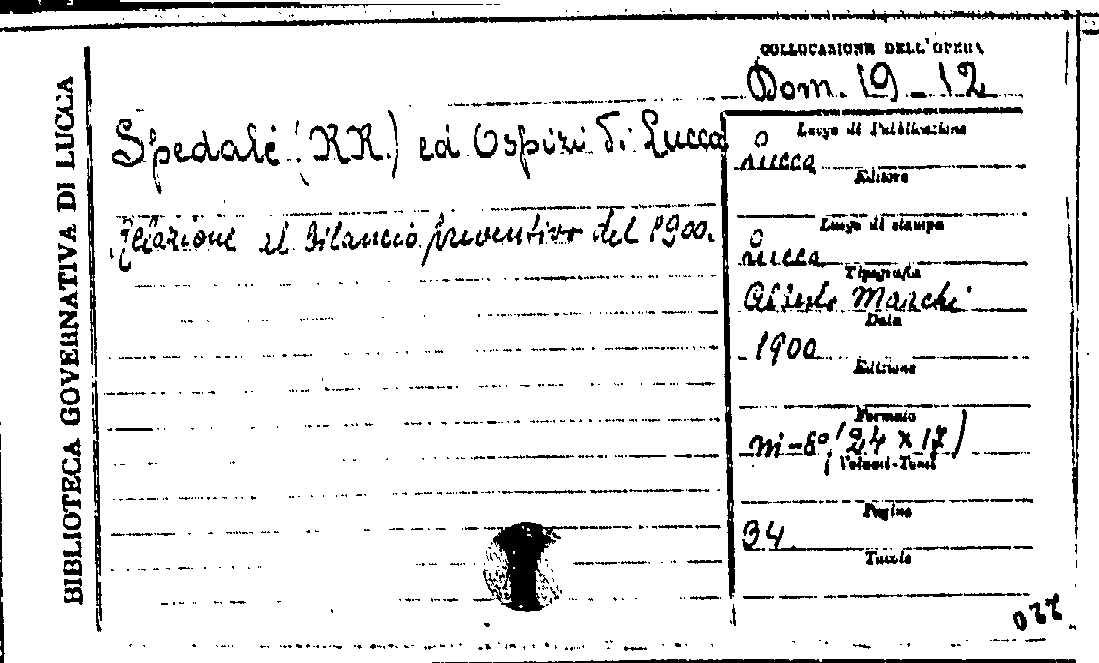 BIBLIOTECA GOVERNATIVA DI LUCCA
COLLOCAZIONE DELL'OPERA
Dom. 19 - 12
Spedali (RR.) ed Ospizi di Lucca
Relazione al Bilancio preventivo del 1900.
Luogo di Pubblicazione
Lucca
Editore
Luogo di stampa
Lucca
Tipografia
Alberto Marchi
Data
1900
Edizione
Formato
in-8° (24 x 17)
Volumi-Tomi
Pagine
34
Tavole
022